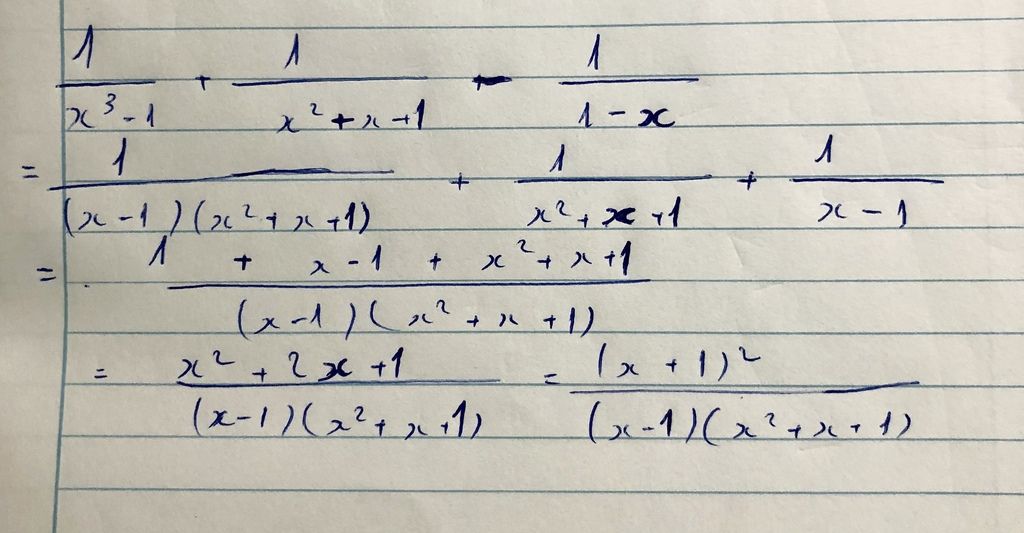 1/(x³ - 1) + 1/(x² + x + 1) - 1/(1 - x)
= 1/((x - 1)(x² + x + 1)) + 1/(x² + x + 1) + 1/(x - 1)
= (1 + x - 1 + x² + x + 1)/((x - 1)(x² + x + 1))
= (x² + 2x + 1)/((x - 1)(x² + x + 1)) = (x + 1)²/((x - 1)(x² + x + 1))